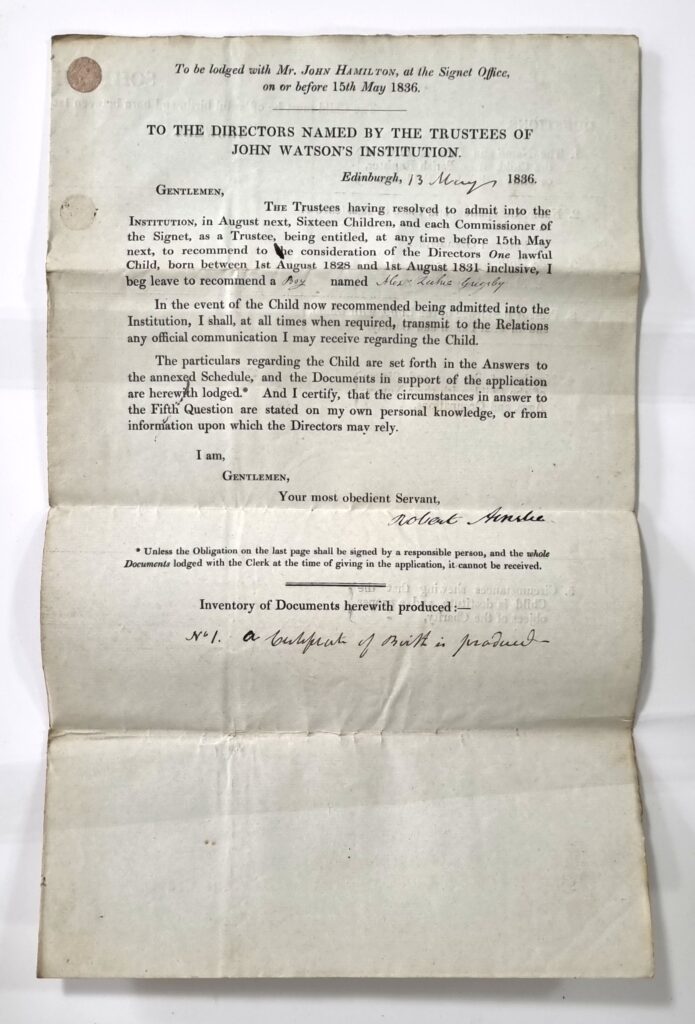 To be lodged with Mr. JOHN HAMILTON, at the Signet Office,
on or before 15th May 1836.
TO THE DIRECTORS NAMED BY THE TRUSTEES OF
JOHN WATSON'S INSTITUTION.
Edinburgh, 13 May 1836.
GENTLEMEN,
THE Trustees having resolved to admit into the
INSTITUTION, in August next, Sixteen Children, and each Commissioner of
the Signet, as a Trustee, being entitled, at any time before 15th May
next, to recommend to the consideration of the Directors One lawful
Child, born between 1st August 1828 and 1st August 1831 inclusive, I
beg leave to recommend a Boy named Alexr
In the event of the Child now recommended being admitted into the
Institution, I shall, at all times when required, transmit to the Relations
any official communication I may receive regarding the Child.
The particulars regarding the Child are set forth in the Answers to
the annexed Schedule, and the Documents in support of the application
are herewith lodged.* And I certify, that the circumstances in answer to
the Fifth Question are stated on my own personal knowledge, or from
information upon which the Directors may rely.
I am,
GENTLEMEN,
Your most obedient Servant,
Robert Ainslie
* Unless the Obligation on the last page shall be signed by a responsible person, and the whole
Documents lodged with the Clerk at the time of giving in the application, it cannot be received.
Inventory of Documents herewith produced:—
No 1. a Certificate of Birth is produced